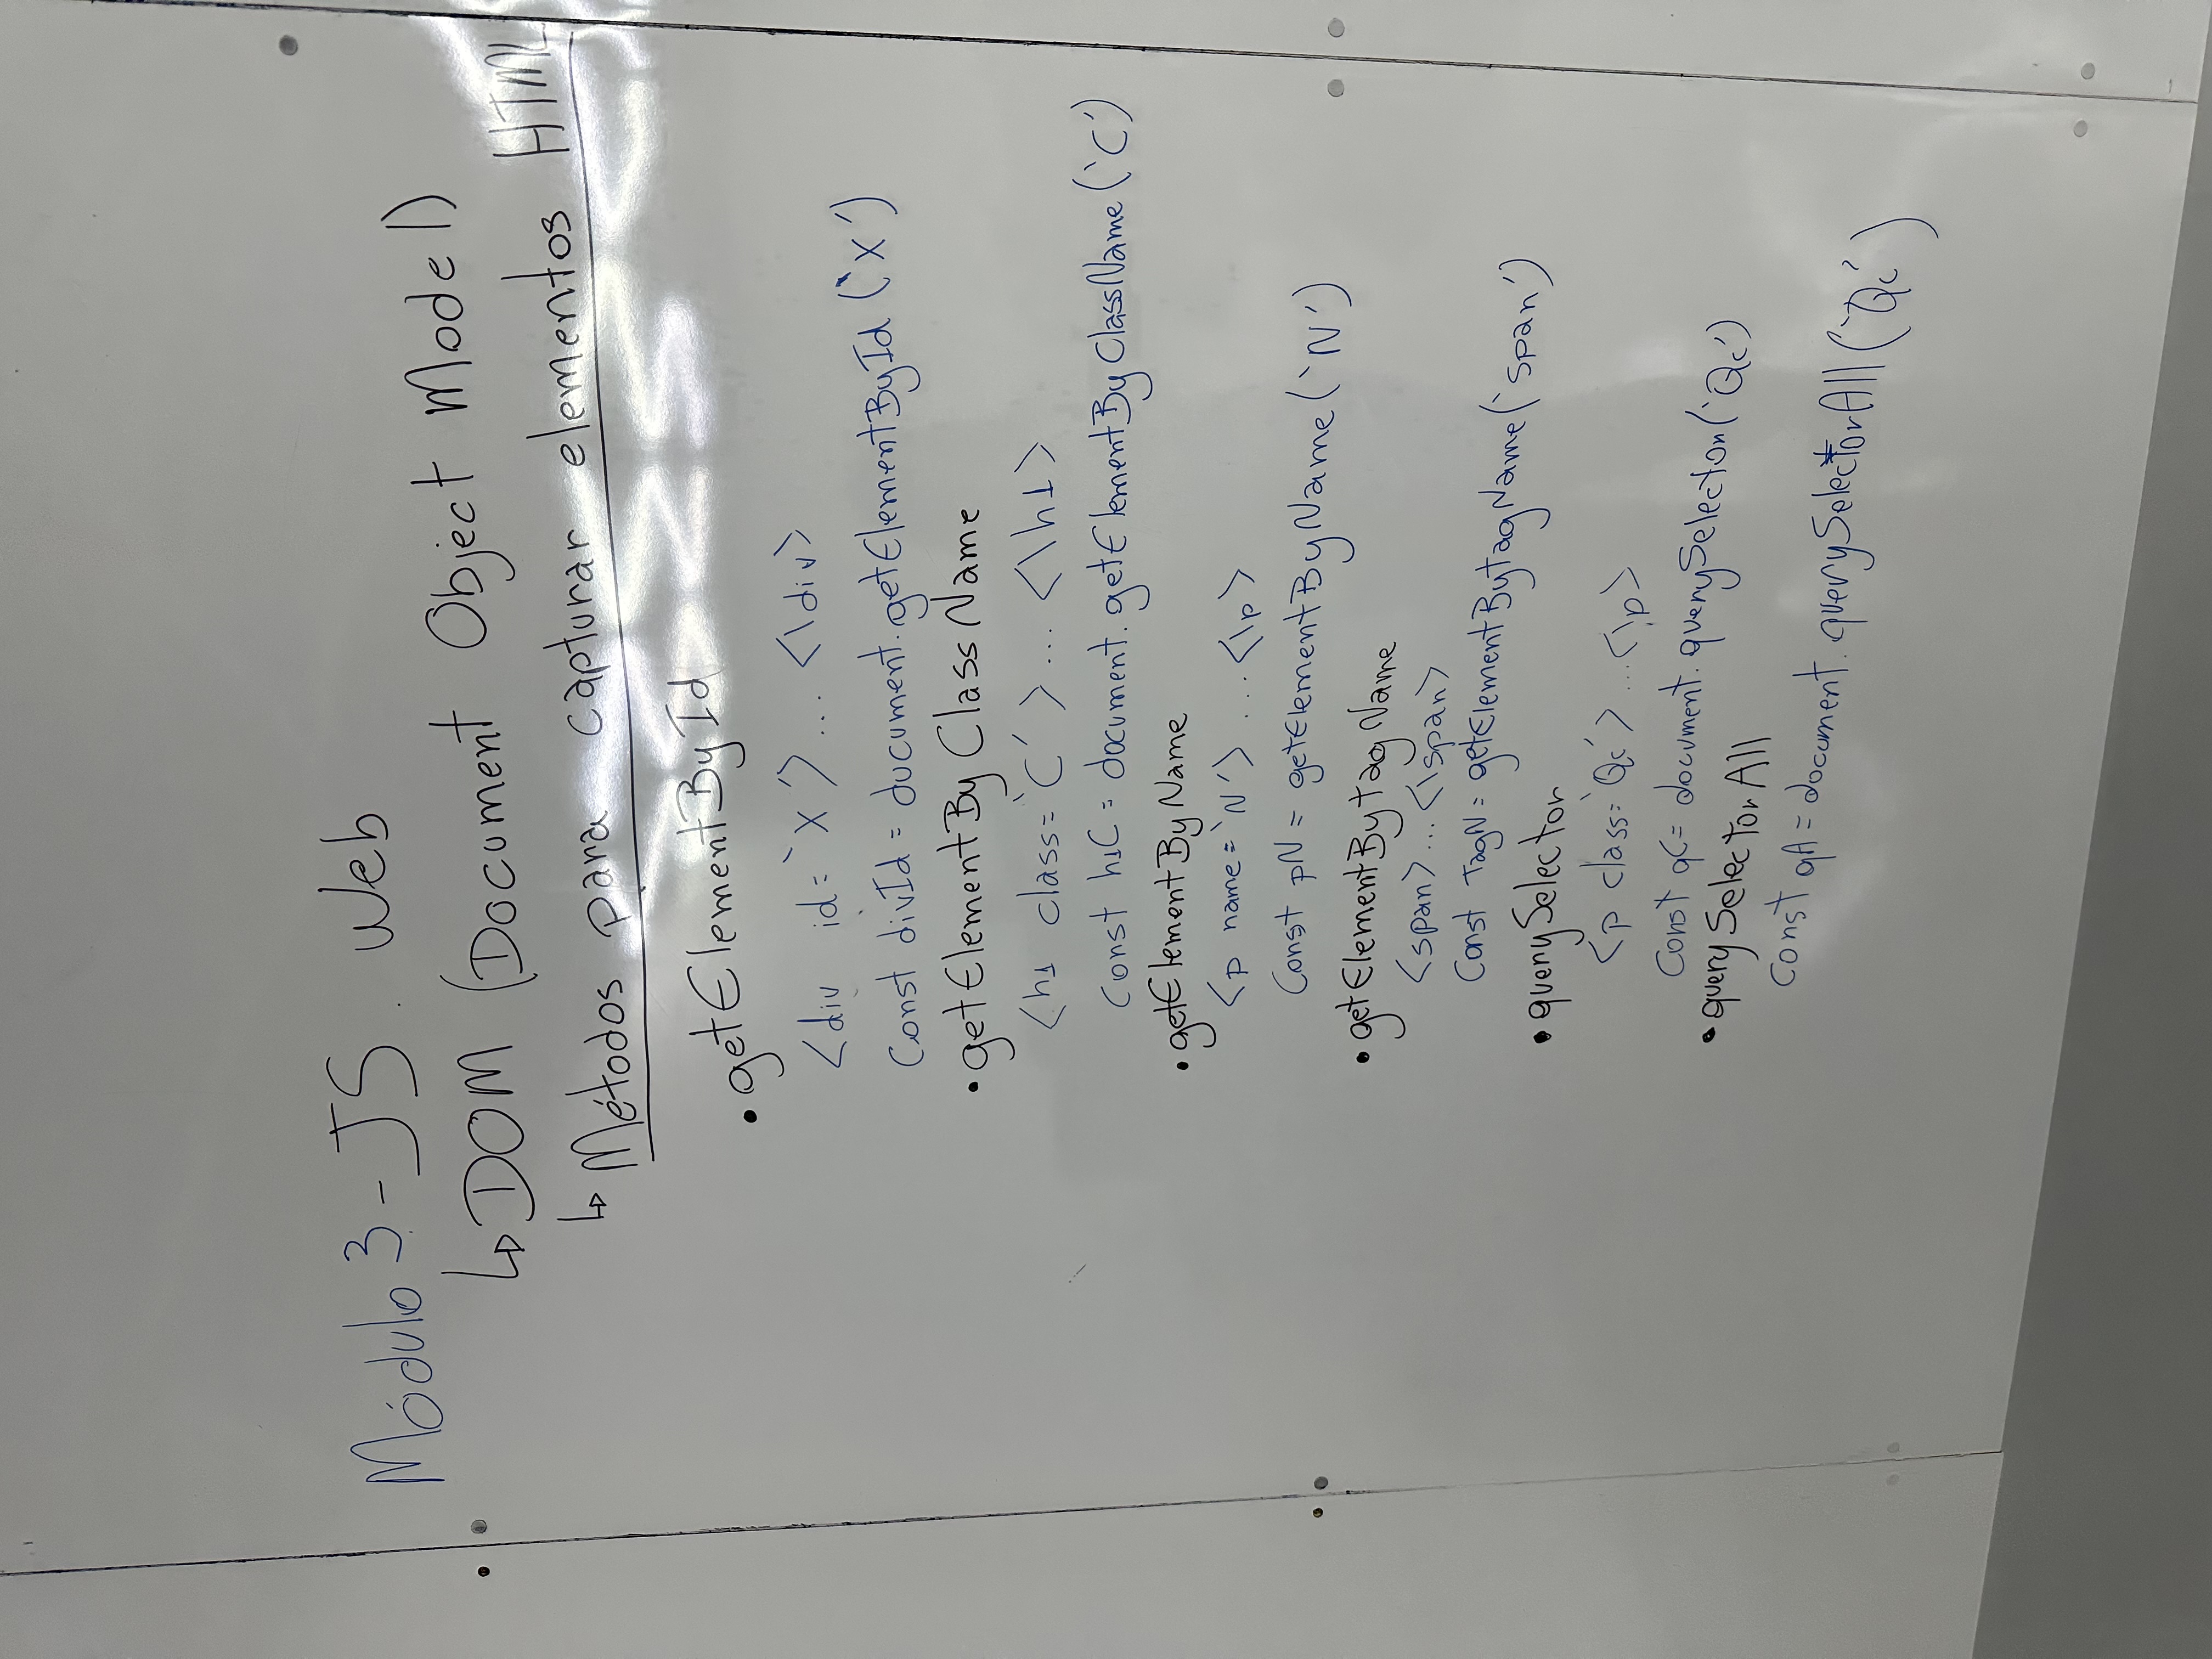 Módulo 3 - JS. Web
↳ DOM (Document Object Model)
↳ Métodos para capturar elementos HTML
• getElementById
<div id=`X´> ... <\div>
Const divId = ducument.getElementById (`X´)
• getElementByClassName
<h1 class=`C´> ... <\h1>
Const h1C = document.getElementByClassName (`C´)
• getElementByName
<p name=`N´> ... <\p>
Const pN = getElementByName (`N´)
• getElementBytagName
<span> ... <\span>
Const TagN = getElementBytagName (`span´)
• querySelector
<p class=`Qc´> ... <\p>
Const qC = document.querySelector (`Qc´)
• querySelectorAll
Const qA = document.querySelectorAll (`Qc´)